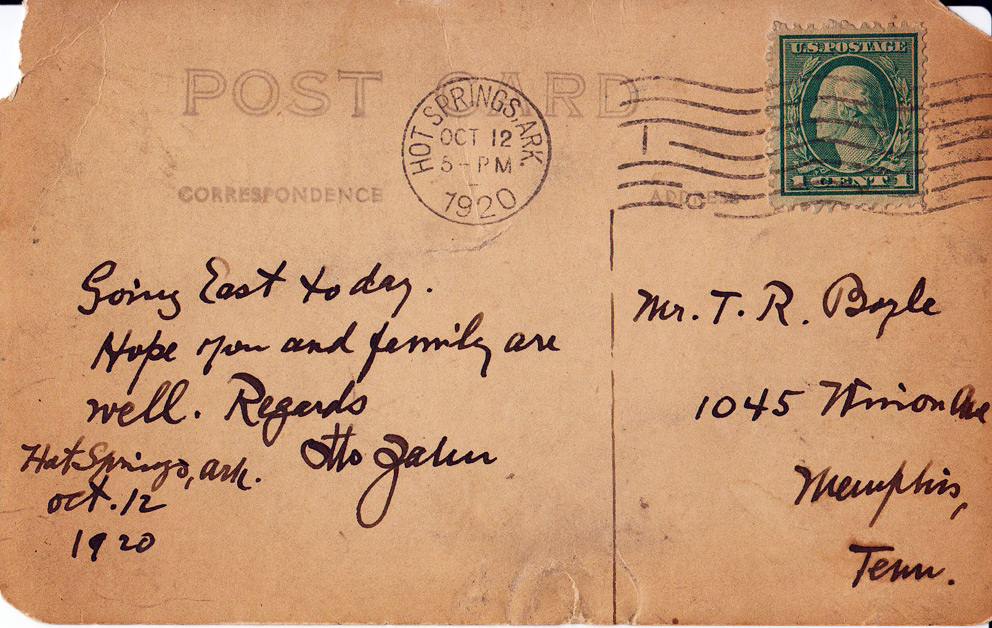 POST CARD
HOT SPRINGS, ARK.
OCT 12
5-PM
1920
U.S. POSTAGE
1 CENT 1
CORRESPONDENCE
ADDRESS
Going East today.
Hope you and family are
well. Regards
Otto Zahn
Hot Springs, Ark.
Oct. 12
1920
Mr. T. R. Boyle
1045 Ave
Memphis,
Tenn.